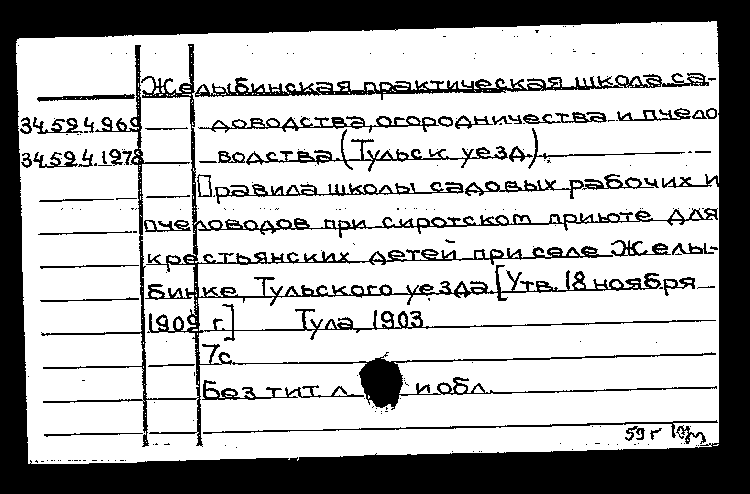 Желыбинская практическая школа са-
34.59.4.969 доводства, огородничества и пчело
34.59.4.1278 водства (Тульск. уезд.).
Правила школы садовых рабочих и
пчеловодов при сиротском приюте для
крестьянских детей при селе Желы-
бинке, Тульского уезда. [Утв. 18 ноября
1902 г.] Тула, 1903.
7с.
Без тит. л. и обл.
59 г